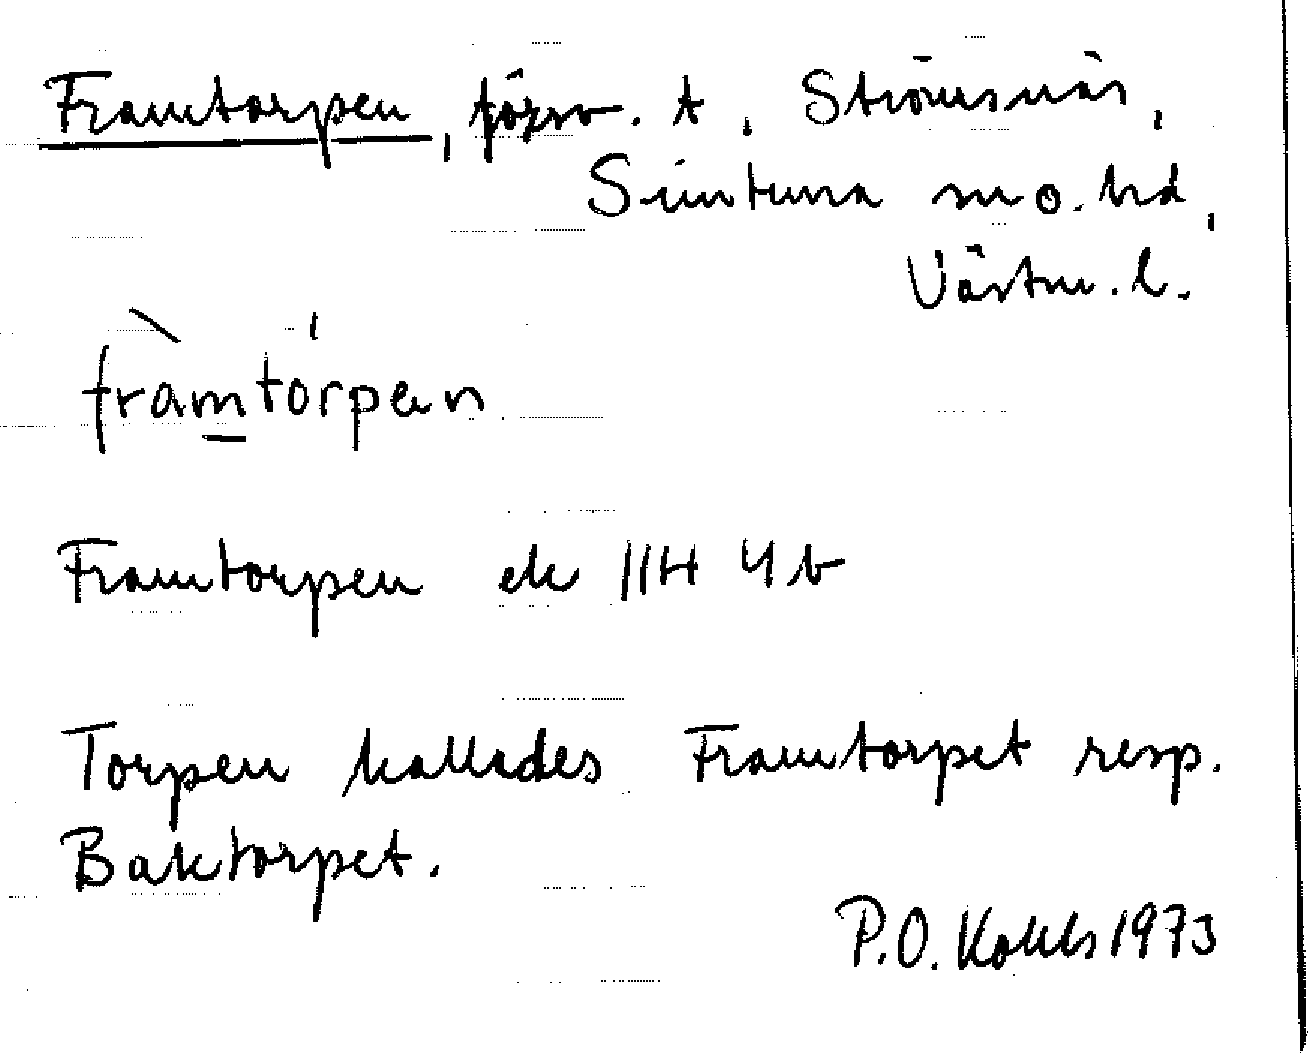 Framtorpen, försv. t., Strömsnäs,
Simtuna sn o. hd,
Västm. l.
framtorpen
Framtorpen ek 11H 4b
Torpen kallades Framtorpet resp.
Baktorpet.
P.O. 1973